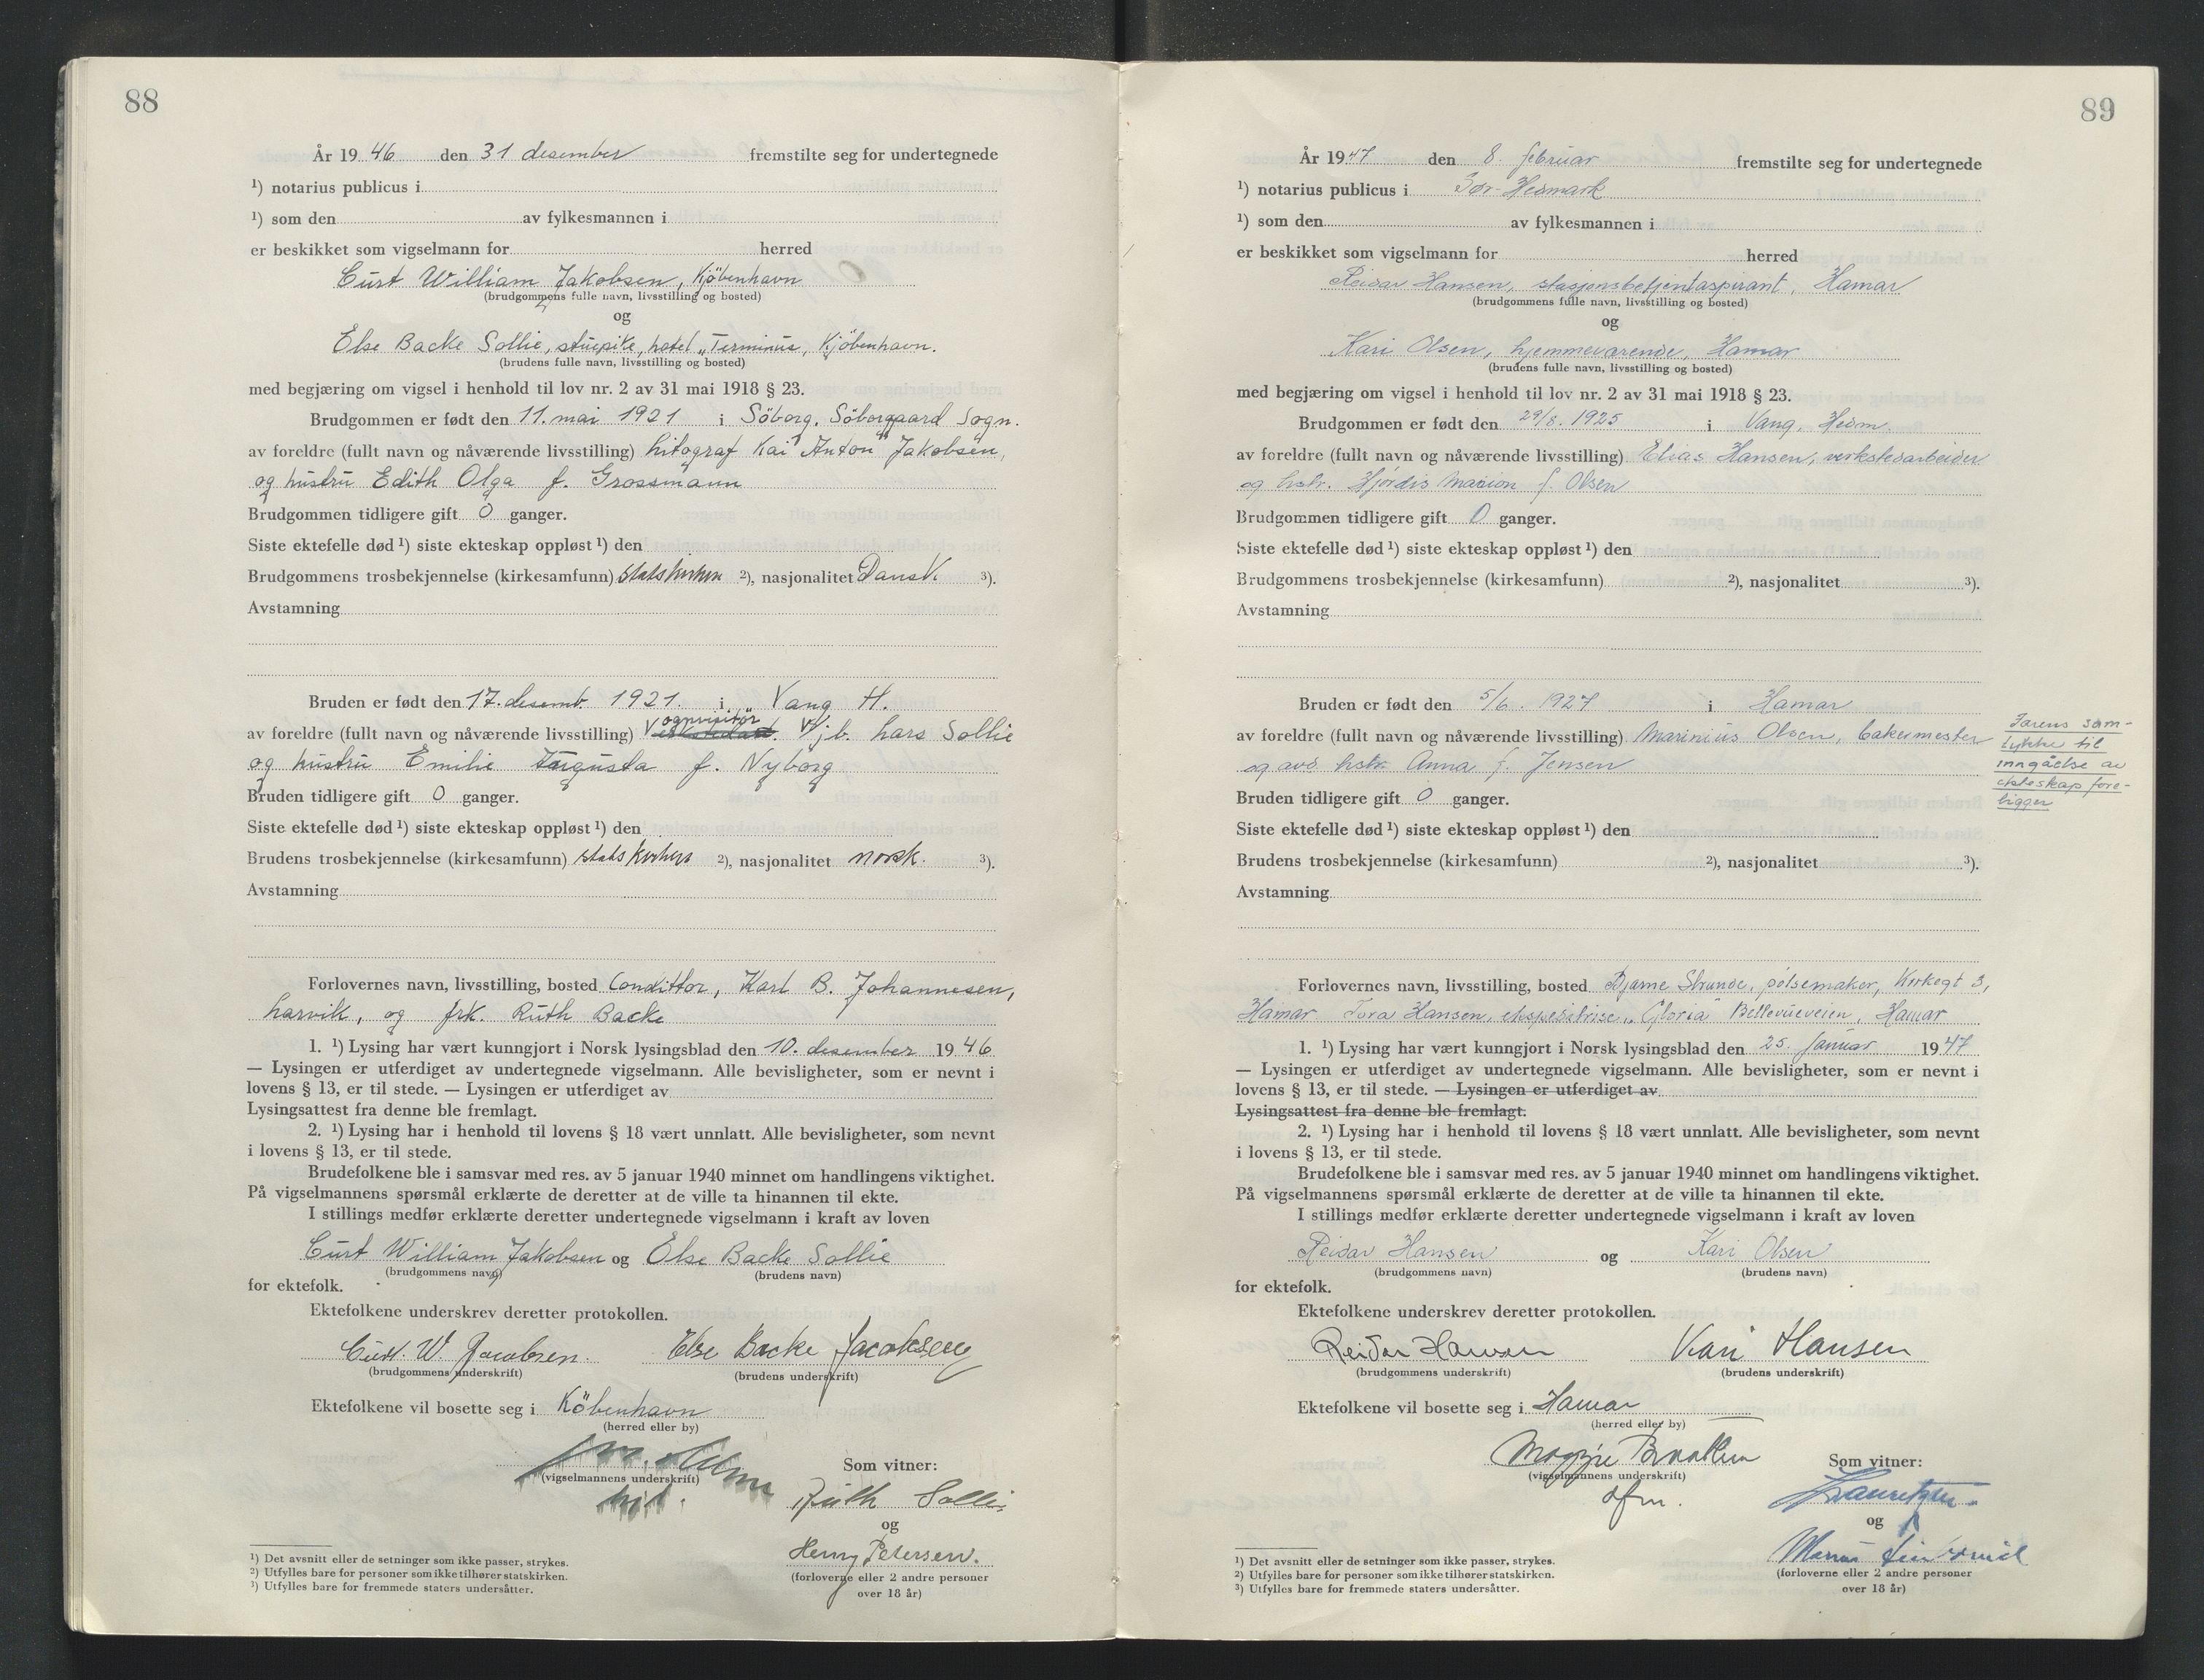 88
År 1946 den 31 desember fremstilte seg for undertegnede
¹) notarius publicus i
¹) som den av fylkesmannen i
er beskikket som vigselmann for herred
Curt William Jakobsen, Kjöbenhavn
(brudgommens fulle navn, livsstilling og bosted)
og
Else Backe Sollie, stuepike, hotel „Terminus, Kjöbenhavn.
(brudens fulle navn, livsstilling og bosted)
med begjæring om vigsel i henhold til lov nr. 2 av 31 mai 1918 § 23.
Brudgommen er født den 11. mai 1921 i Söborg, Söborggaard Sogn.
av foreldre (fullt navn og nåværende livsstilling) Litograf Kai Anton Jakobsen,
og hustru Edith Olga f. Grossmann
Brudgommen tidligere gift 0 ganger.
Siste ektefelle død ¹) siste ekteskap oppløst ¹) den
Brudgommens trosbekjennelse (kirkesamfunn) statskirken ²), nasjonalitet Dansk ³).
Avstamning
Bruden er født den 17. desemb. 1921. i Vang H.
av foreldre (fullt navn og nåværende livsstilling) Vognvisitör v/jb. Lars Sollie
og hustru Emilie Augusta f. Nyborg
Bruden tidligere gift 0 ganger.
Siste ektefelle død ¹) siste ekteskap oppløst ¹) den
Brudens trosbekjennelse (kirkesamfunn) statskirken ²), nasjonalitet norsk. ³).
Avstamning
Forlovernes navn, livsstilling, bosted Condittor, Karl B. Johannesen,
Larvik, og frk. Ruth Backe
1. ¹) Lysing har vært kunngjort i Norsk lysingsblad den 10. desember 1946
— Lysingen er utferdiget av undertegnede vigselmann. Alle bevisligheter, som er nevnt i
lovens § 13, er til stede. — Lysingen er utferdiget av
Lysingsattest fra denne ble fremlagt.
2. ¹) Lysing har i henhold til lovens § 18 vært unnlatt. Alle bevisligheter, som nevnt
i lovens § 13, er til stede.
Brudefolkene ble i samsvar med res. av 5 januar 1940 minnet om handlingens viktighet.
På vigselmannens spørsmål erklærte de deretter at de ville ta hinannen til ekte.
I stillings medfør erklærte deretter undertegnede vigselmann i kraft av loven
Curt William Jakobsen og Else Backe Sollie
(brudgommens navn) (brudens navn)
for ektefolk.
Ektefolkene underskrev deretter protokollen.
Curt. W. Jacobsen. Else Backe Jacobsen
(brudgommens underskrift) (brudens underskrift)
Ektefolkene vil bosette seg i Köbenhavn
(herred eller by)
(vigselmannens underskrift)
Som vitner:
Ruth Sollie
og
Henry Petersen.
(forloverne eller 2 andre personer
over 18 år)
¹) Det avsnitt eller de setninger som ikke passer, strykes.
²) Utfylles bare for personer som ikke tilhører statskirken.
³) Utfylles bare for fremmede staters undersåtter.
89
År 1947 den 8. februar fremstilte seg for undertegnede
¹) notarius publicus i Sør-Hedmark
¹) som den av fylkesmannen i
er beskikket som vigselmann for herred
Reidar Hansen, stasjonsbetjentaspirant, Hamar
(brudgommens fulle navn, livsstilling og bosted)
og
Kari Olsen, hjemmeværende, Hamar
(brudens fulle navn, livsstilling og bosted)
med begjæring om vigsel i henhold til lov nr. 2 av 31 mai 1918 § 23.
Brudgommen er født den 29/8. 1925 i Vang, Hedm.
av foreldre (fullt navn og nåværende livsstilling) Elias Hansen, verkstedarbeider
og hstr. Hjørdis Marion f. Olsen
Brudgommen tidligere gift 0 ganger.
Siste ektefelle død ¹) siste ekteskap oppløst ¹) den
Brudgommens trosbekjennelse (kirkesamfunn) ²), nasjonalitet ³).
Avstamning
Bruden er født den 5/6. 1927 i Hamar
av foreldre (fullt navn og nåværende livsstilling) Marinius Olsen, bakermester
og avd. hstr. Anna f. Jensen
Farens sam-
tykke til
inngåelse av
ekteskap fore-
ligger
Bruden tidligere gift 0 ganger.
Siste ektefelle død ¹) siste ekteskap oppløst ¹) den
Brudens trosbekjennelse (kirkesamfunn) ²), nasjonalitet ³).
Avstamning
Forlovernes navn, livsstilling, bosted Bjarne Strande, pølsemaker, Kirkegt 3,
Hamar Tora Hansen, ekspeditrise, „Gloria" Bellevueveien, Hamar
1. ¹) Lysing har vært kunngjort i Norsk lysingsblad den 25. januar 1947
— Lysingen er utferdiget av undertegnede vigselmann. Alle bevisligheter, som er nevnt i
lovens § 13, er til stede. — Lysingen er utferdiget av
Lysingsattest fra denne ble fremlagt.
2. ¹) Lysing har i henhold til lovens § 18 vært unnlatt. Alle bevisligheter, som nevnt
i lovens § 13, er til stede.
Brudefolkene ble i samsvar med res. av 5 januar 1940 minnet om handlingens viktighet.
På vigselmannens spørsmål erklærte de deretter at de ville ta hinannen til ekte.
I stillings medfør erklærte deretter undertegnede vigselmann i kraft av loven
Reidar Hansen og Kari Olsen
(brudgommens navn) (brudens navn)
for ektefolk.
Ektefolkene underskrev deretter protokollen.
Reidar Hansen Kari Hansen
(brudgommens underskrift) (brudens underskrift)
Ektefolkene vil bosette seg i Hamar
(herred eller by)
(vigselmannens underskrift)
dfm.
Som vitner:
og
(forloverne eller 2 andre personer
over 18 år)
¹) Det avsnitt eller de setninger som ikke passer, strykes.
²) Utfylles bare for personer som ikke tilhører statskirken.
³) Utfylles bare for fremmede staters undersåtter.